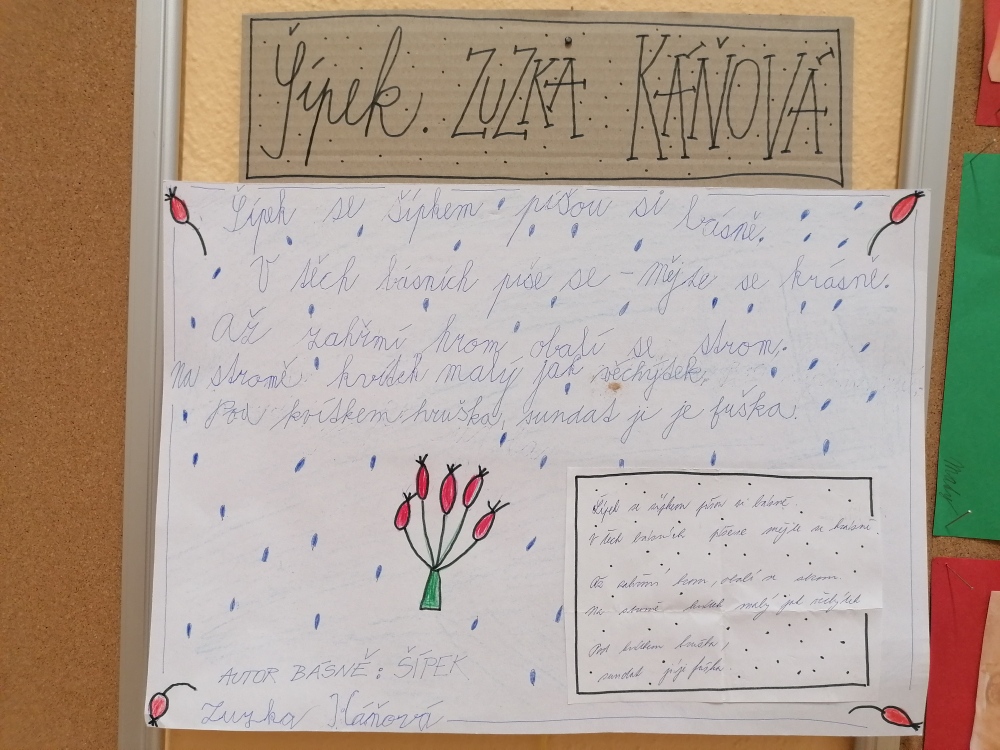 Šípek. ZUZKA KÁŇOVÁ
Šípek se šípkem píšou si básně.
V těch básních píše se - mějte se krásně.
Až zahřmí hrom obalí se strom.
Na stromě kvítek malý jak věchýtek.
Pod kvítkem hruška, sundat ji je fuška.
Šípek se šípkem píšou si básně.
V těch básních píšese mějte se krásně.
Až zahřmí hrom, obalí se strom.
Na stromě kvítek malý jak věchýtek
Pod kvítkem hruška,
sundat ji je fuška.
AUTOR BÁSNĚ: ŠÍPEK
Zuzka Káňová